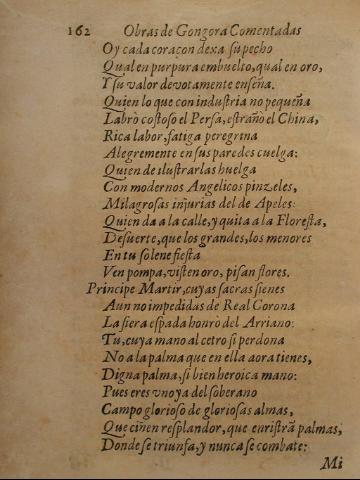 162 Obras de Gongora Comentadas
Oy cada coraçon dexa su pecho
Qual en purpura embuelto, qual en oro,
Y su valor devotamente enseña.
Quien lo que con industria no pequeña
Labrò costoso el Persa, estraño el China,
Rica labor, fatiga peregrina
Alegremente en sus paredes cuelga:
Quien de ilustrarlas huelga
Con modernos Angelicos pinzeles,
Milagrosas injurias del de Apeles:
Quien da a la calle, y quita a la Floresta,
De suerte, que los grandes, los menores
En tu solene fiesta
Ven pompa, visten oro, pisan flores.
Principe Martir, cuyas sacras sienes
Aun no impedidas de Real Corona
La fiera espada honrò del Arriano:
Tu, cuya mano al cetro si perdona
No a la palma que en ella aora tienes,
Digna palma, si bien heroica mano:
Pues eres uno ya del soberano
Campo glorioso de gloriosas almas,
Que ciñen resplandor, que enristrã palmas,
Donde se triunfa, y nunca se combate:
Mi